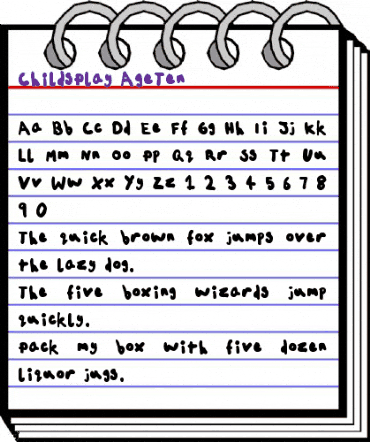 Childsplay AgeTen
Aa Bb Cc Dd Ee Ff Gg Hh Ii Jj Kk
Ll Mm Nn Oo Pp Qq Rr Ss Tt Uu
Vv Ww Xx Yy Zz 1 2 3 4 5 6 7 8
9 0
The quick brown fox jumps over
the lazy dog.
The five boxing wizards jump
quickly.
Pack my box with five dozen
liquor jugs.